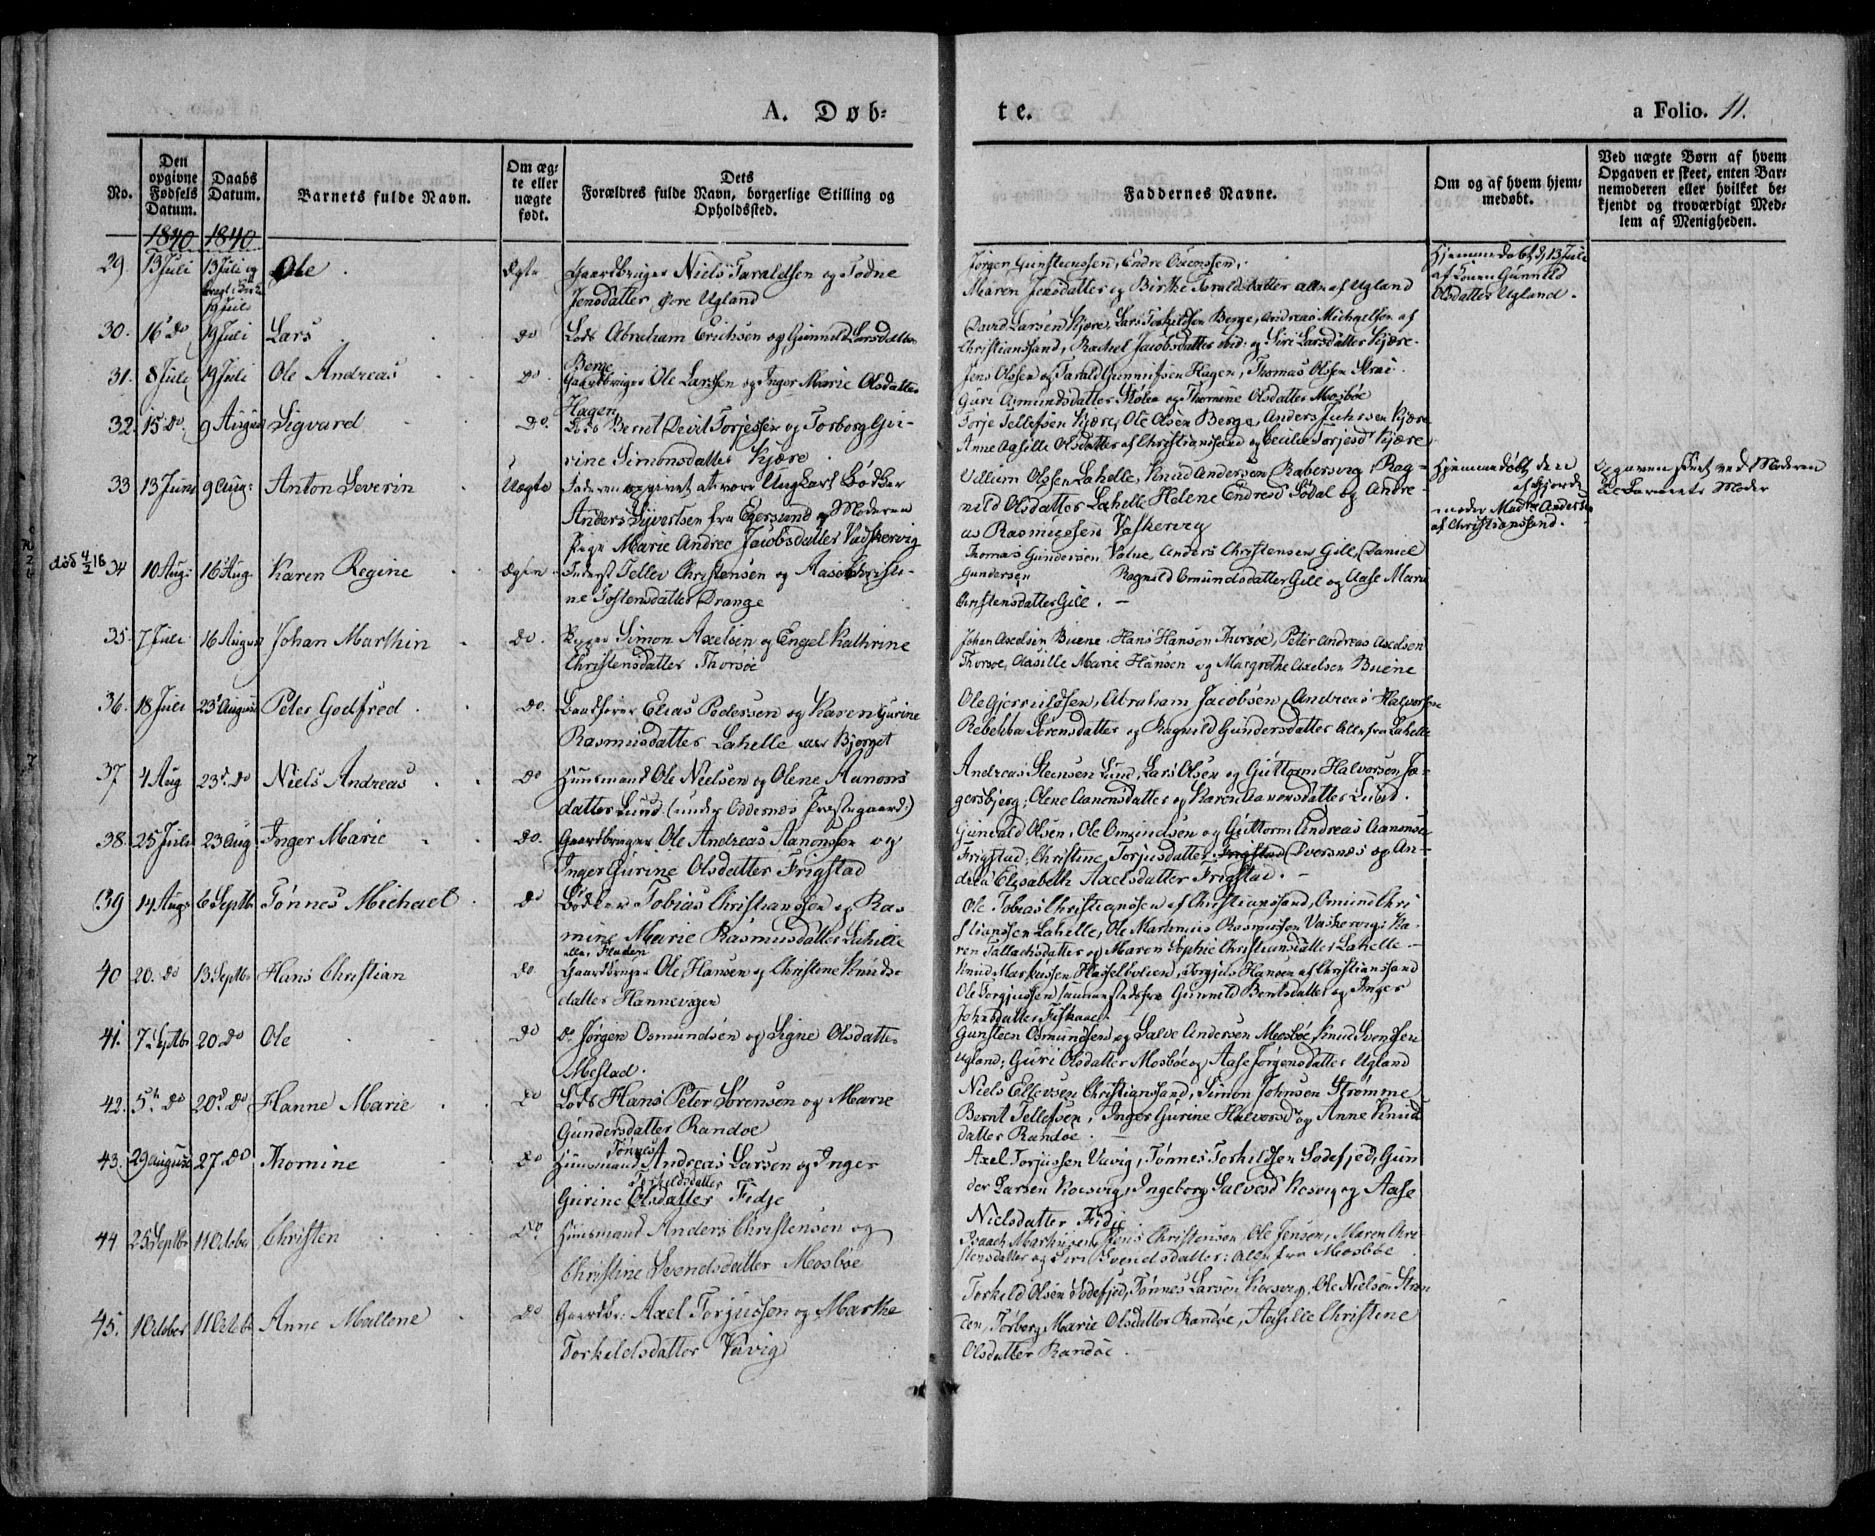 A. Døb-
te.
a Folio. 11.
No.
Den opgivne Fødsels Datum.
Daabs Datum.
Barnets fulde Navn.
Om ægte eller uægte født.
Dets
Forældres fulde Navn, borgerlige Stilling og
Opholdssted.
Faddernes Navne.
Om og af hvem hjemmedøbt.
Ved uægte Børn af hvem
Opgaven er skeet, enten Barnemoderen
eller hvilket bekjendt
og troværdigt Medlem
af Menigheden.
1840 1840
29. 13 Juli 13 Juli og 19 Juli Ole Ægte Gaardbruger Niels Taraldsen og Todne
Jensdatter Øvre Ugland
Jørgen Gunsteenssen, Endre
Maren Jensdatter og Birthe Taraldsdatter alle af Ugland
Hjemmedøbt d 13 Juli
af Konen Gunnild
Olsdatter Ugland.
30. 16 do 19 Juli Lars do Lods Abraham Erichsen og Gunnild Larsdatter
Berge
David Larsen Kjære, Lars Torkildsen Berge, Andreas Michaelsen af
Christianssand, Rachel Jacobsdatter ibid. og Siri Larsdatter Kjære.
31. 8 Juli 19 Juli Ole Andreas do Gaardbruger Ole Larssen og Inger Marie Olsdatter
Hagen
Jens Olssen og Tarald Gunnufsen Hagen, Thomas Olsen Strai.
Guri Asmundsdatter Stølen og Thomine Olsdatter Mosbøe
32. 15 do 9 August Sigvard do. Lods Bernt Devit Torjessen og Torborg Gurine
Simonsdatter Kjære.
Torje Tellefsen Kjære, Ole Olsen Berge, Anders Kjære
Anne Aasille Olsdatter af Christianssand og Cecilie Torjesd Kjære
33 13 Juni 9 Aug: Anton Severin Uægte Faderen opgivet at være Ungkarl Bødker
Anders Syvertsen fra Egersund og Moderen
Pige Marie Andrea Jacobsdatter Vaskervig
Villum Olssen Lahelle, Knud Andersen Rabersvig, Ragnild
Olsdatter Lahelle Helene Endresd Sødal og Andreas
Rasmussen Vaskervig
Hjemmedøbt den
af Gjordemoder
Mad: Andersen
af Christianssand.
Opgaven skeet ved Moderen
Barnets Moder
død 4/2 16 34 10 Aug: 16 Aug. Karen Regine Ægte Inderst Tellef Christensen og Aase Christine
Tostensdatter Drange
Thomas Gundersen Anders Christensen Gill, Daniel
Gundersen Ragnild Omundsdatter Gill og Aase Marie
Christensdatter Gill. —
35. 7 Juli 16 August Johan Marthin do. Simon Axelsen og Engel Kathrine
Christensdatter Thorsøe
Johan Axelsen Buene. Hans Hansen Thorsøe, Peter Andreas Axelsen
Thorsøe, Aasille Marie Hansen og Margrethe Axelsen Buene
36. 18 Juli 23 August Peter Godfred. do. Elias Pedersen og Karen Gurine
Rasmusdatter Lahelle Bjorget
Ole Gjerruldsen, Abraham Jacobsen, Andreas Halvorsen
Rebekka Sørensdatter og Ragnild Gundersdatter Alle fra Lahelle
37 4 Aug 23d do Niels Andreas do Huusmand Ole Nielsen og Olene Aanonsdatter
Lund (under Oddernes Præstegaard.)
Andreas Steensen Lund, Lars Olsen og Guttorm Halvorsen Jægersbjerg,
Olene Aanonsdatter og Karen Aanonsdatter Lund.
38. 25 Juli 23 Aug Inger Marie do. Gaardbruger Ole Andreas Aanonssen og
Inger Gurine Olsdatter Frigstad
Gunvald Olsen, Ole Omundsen og Guttorm Andreas Aanonsen
Frigstad, Christine Torjusdatter Dversnes og Andrea
Elisabeth Axelsdatter Frigstad. —
39 14 Aug: 6 Septb. Tønnes Michael do Bødker Tobias Christianssen og Rasmine
Marie Rasmusdatter Lahelle
Ole Tobias Christianssen af Christianssand, Omund Christianssen
Lahelle, Ole Martinius Rasmussen Vaskervig, Karen
Tallachsdatter og Maren Sophie Christiansdatter Lahelle —
40 20. do 13 Septbr Hans Christian do Gaardbruger Ole Hansen og Christine Knudsdatter
Hannevigen
Knud Markussen Hasselbolien, Torgjus Hansen af Christianssand
Ole Torgjussen, Gunnild Berntsdatter og Inger
Johnsdatter Fiskaae.
41. 7 Septbr 20 do Ole do do Jørgen Osmundsen og Signe Olsdatter
Mestad.
Gunsteen Osmundsen og Salve Andersen Mosbøe, Knud Svendsen
Ugland; Guri Olsdatter Mosbøe og Aase Jørgensdatter Ugland
42. 5te do 20d do Hanne Marie do Lods Hans Peter Sørensen og Marie
Gundersdatter Randøe
Niels Ellevsen Christianssand, Simon Johnsen Strømme
Bernt Tellefsen, Inger Gurine Halvorsd og Anne Knudsdatter
Randøe.
43. 29 August 27 do Thomine do Huusmand Tønnes Andreas Larsen og Inger
Gurine Torkildsdatter Fidje
Axel Torjussen Vavig, Tønnes Torkildsen Sodefjed, Gunder
Larsen Kosvig, Ingeborg Salvesd Kosvig og Aase
Nielsdatter Fidje
44 25 Septbr 11 October Christen do Huusmand Anders Christensen og
Christine Svendsdatter Mosbøe
Isaach Markusen, Jens Christensen, Ole Jensen, Maren Christensdatter
og Siri Svendsdatter: Alle fra Mosbøe
45. 1 October 11 Octob: Anne Mallene do Gaardbr: Axel Torjussen og Marthe
Torkildsdatter Vavig
Torkild Olsen Sodefjed, Tønnes Larsen Kosvig, Ole Nielsen Stranden,
Torborg Marie Olsdatter Randøe, Aasille Christine
Olsdatter Randøe.